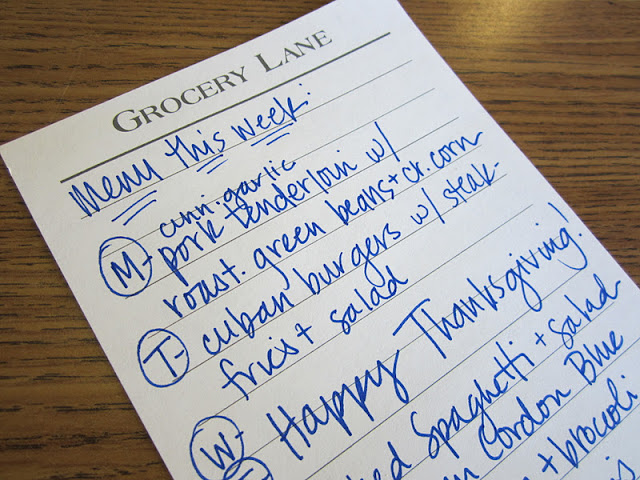 GROCERY LANE
Menu this week:
cinn. garlic
M- pork tenderloin w/
roast. green beans + cr. corn
T- cuban burgers w/ steak-
fries + salad
W- Happy Thanksgiving!
spaghetti + salad
Cordon Blue
+ broccoli